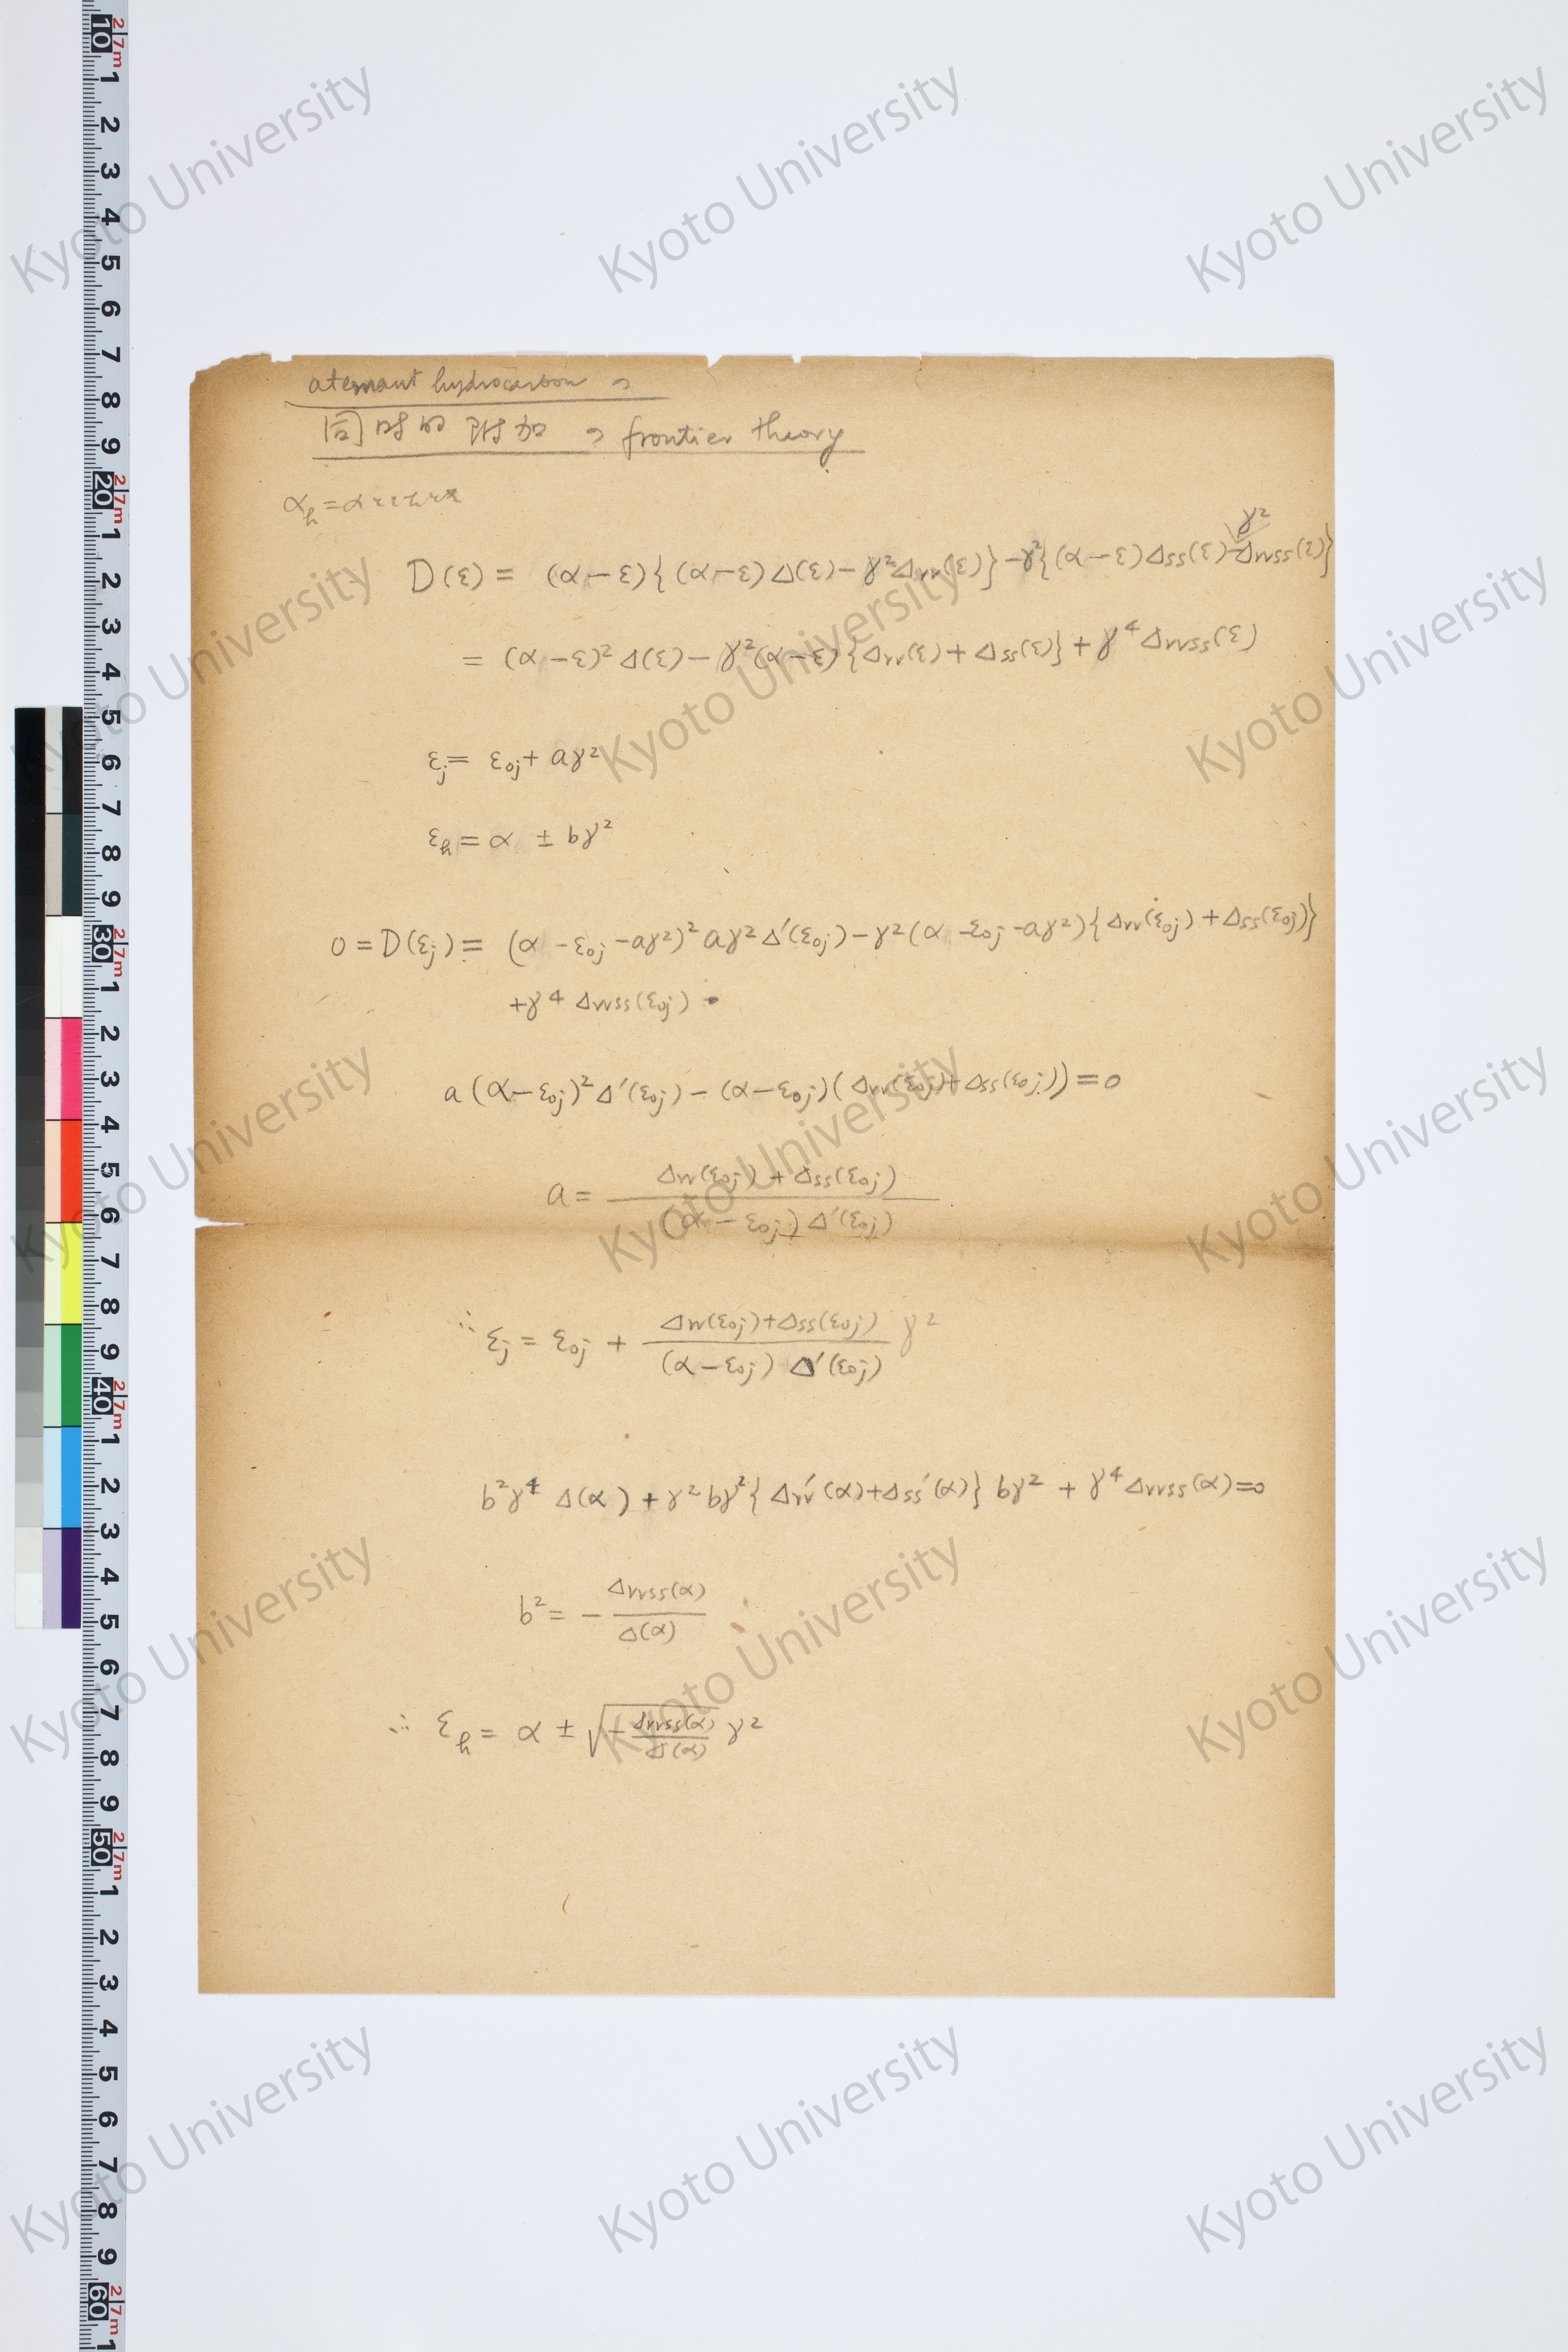 aternant hydrocarbon の
同時的附加 の frontier theory
α_h = α
D(ε) = (α − ε){(α − ε)Δ(ε) − γ²Δrr(ε)} − γ²{(α − ε)Δss(ε) − γ²Δrrss(ε)}
= (α − ε)²Δ(ε) − γ²(α − ε){Δrr(ε) + Δss(ε)} + γ⁴Δrrss(ε)
ε_j = ε_0j + aγ²
ε_h = α ± bγ²
0 = D(ε_j) = (α − ε_0j − aγ²)² aγ²Δ′(ε_0j) − γ²(α − ε_0j − aγ²){Δrr(ε_0j) + Δss(ε_0j)}
+ γ⁴Δrrss(ε_0j)
a(α − ε_0j)²Δ′(ε_0j) − (α − ε_0j)(Δrr(ε_0j) + Δss(ε_0j)) = 0
a = (Δrr(ε_0j) + Δss(ε_0j)) / ((α − ε_0j)Δ′(ε_0j))
∵ ε_j = ε_0j + (Δrr(ε_0j) + Δss(ε_0j)) / ((α − ε_0j)Δ′(ε_0j)) γ²
b²γ⁴Δ(α) + γ²bγ²{Δrr′(α) + Δss′(α)}bγ² + γ⁴Δrrss(α) = 0
b² = − Δrrss(α) / Δ(α)
∴ ε_h = α ± √(− Δrrss(α) / Δ(α)) γ²
Kyoto University